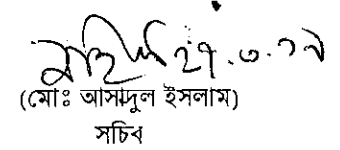 ২৭.৩.১৭
(মোঃ আসাদুল ইসলাম)
সচিব